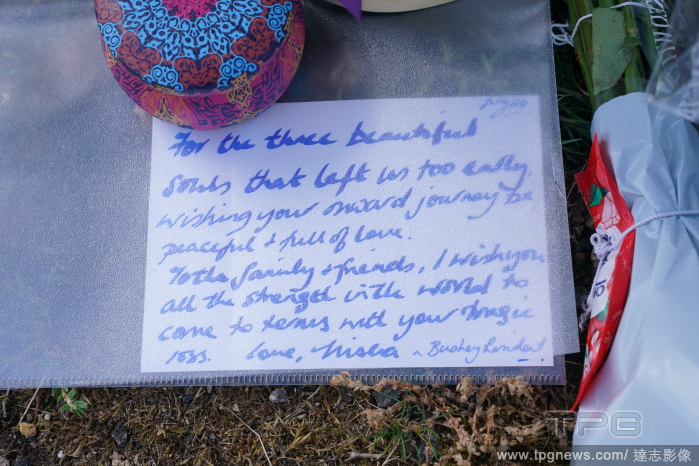 July 24
For the three beautiful
souls that left us too early,
wishing your onward journey be
peaceful + full of love.
To the family + friends, I wish you
all the strength in the world to
come to terms with your tragic
loss. Love, ~ Bushey Resident
TPG
www.tpgnews.com/ 達志影像